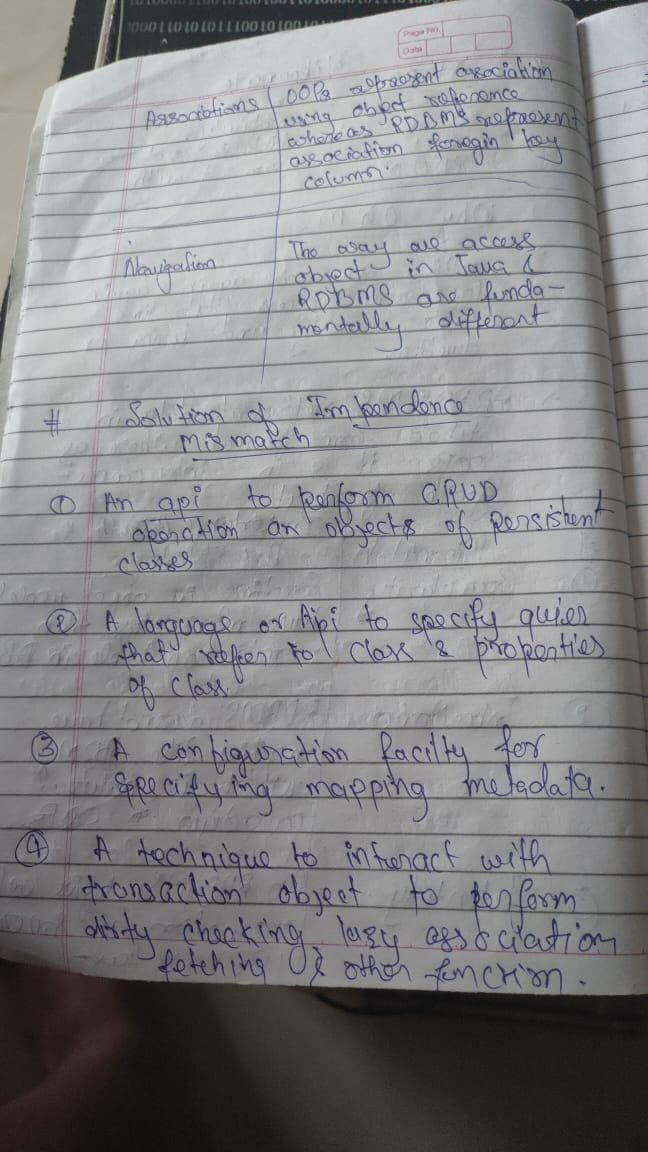 0001101010111001010
Page No.
Date
Associations
OOPs represent association
using object reference
whereas RDBMS represent
association foregin key
column.
Navigation
The way we access
object in Java &
RDBMS are funda-
mentally different
# Solution of Impendence
Mismatch
① An api to perform CRUD
operation an objects of persistent
classes
② A language or Api to specify quies
that refer to class & properties
of class.
③ A configuration facilty for
specifying mapping metadata.
④ A technique to interact with
transaction object to perform
dirty checking lazy association
fetching & other function.